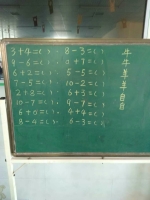 3+4=( ) 8-3=( )
9-6=( ) 0+7=( )
6+2=( ) 5-5=( )
7-5=( ) 10-2=( )
2+8=( ) 6+3=( )
10-7=( ) 9-7=( )
6+0=( ) 4+4=( )
8-4=( ) 6-3=( )
牛
牛
羊
羊
自
自